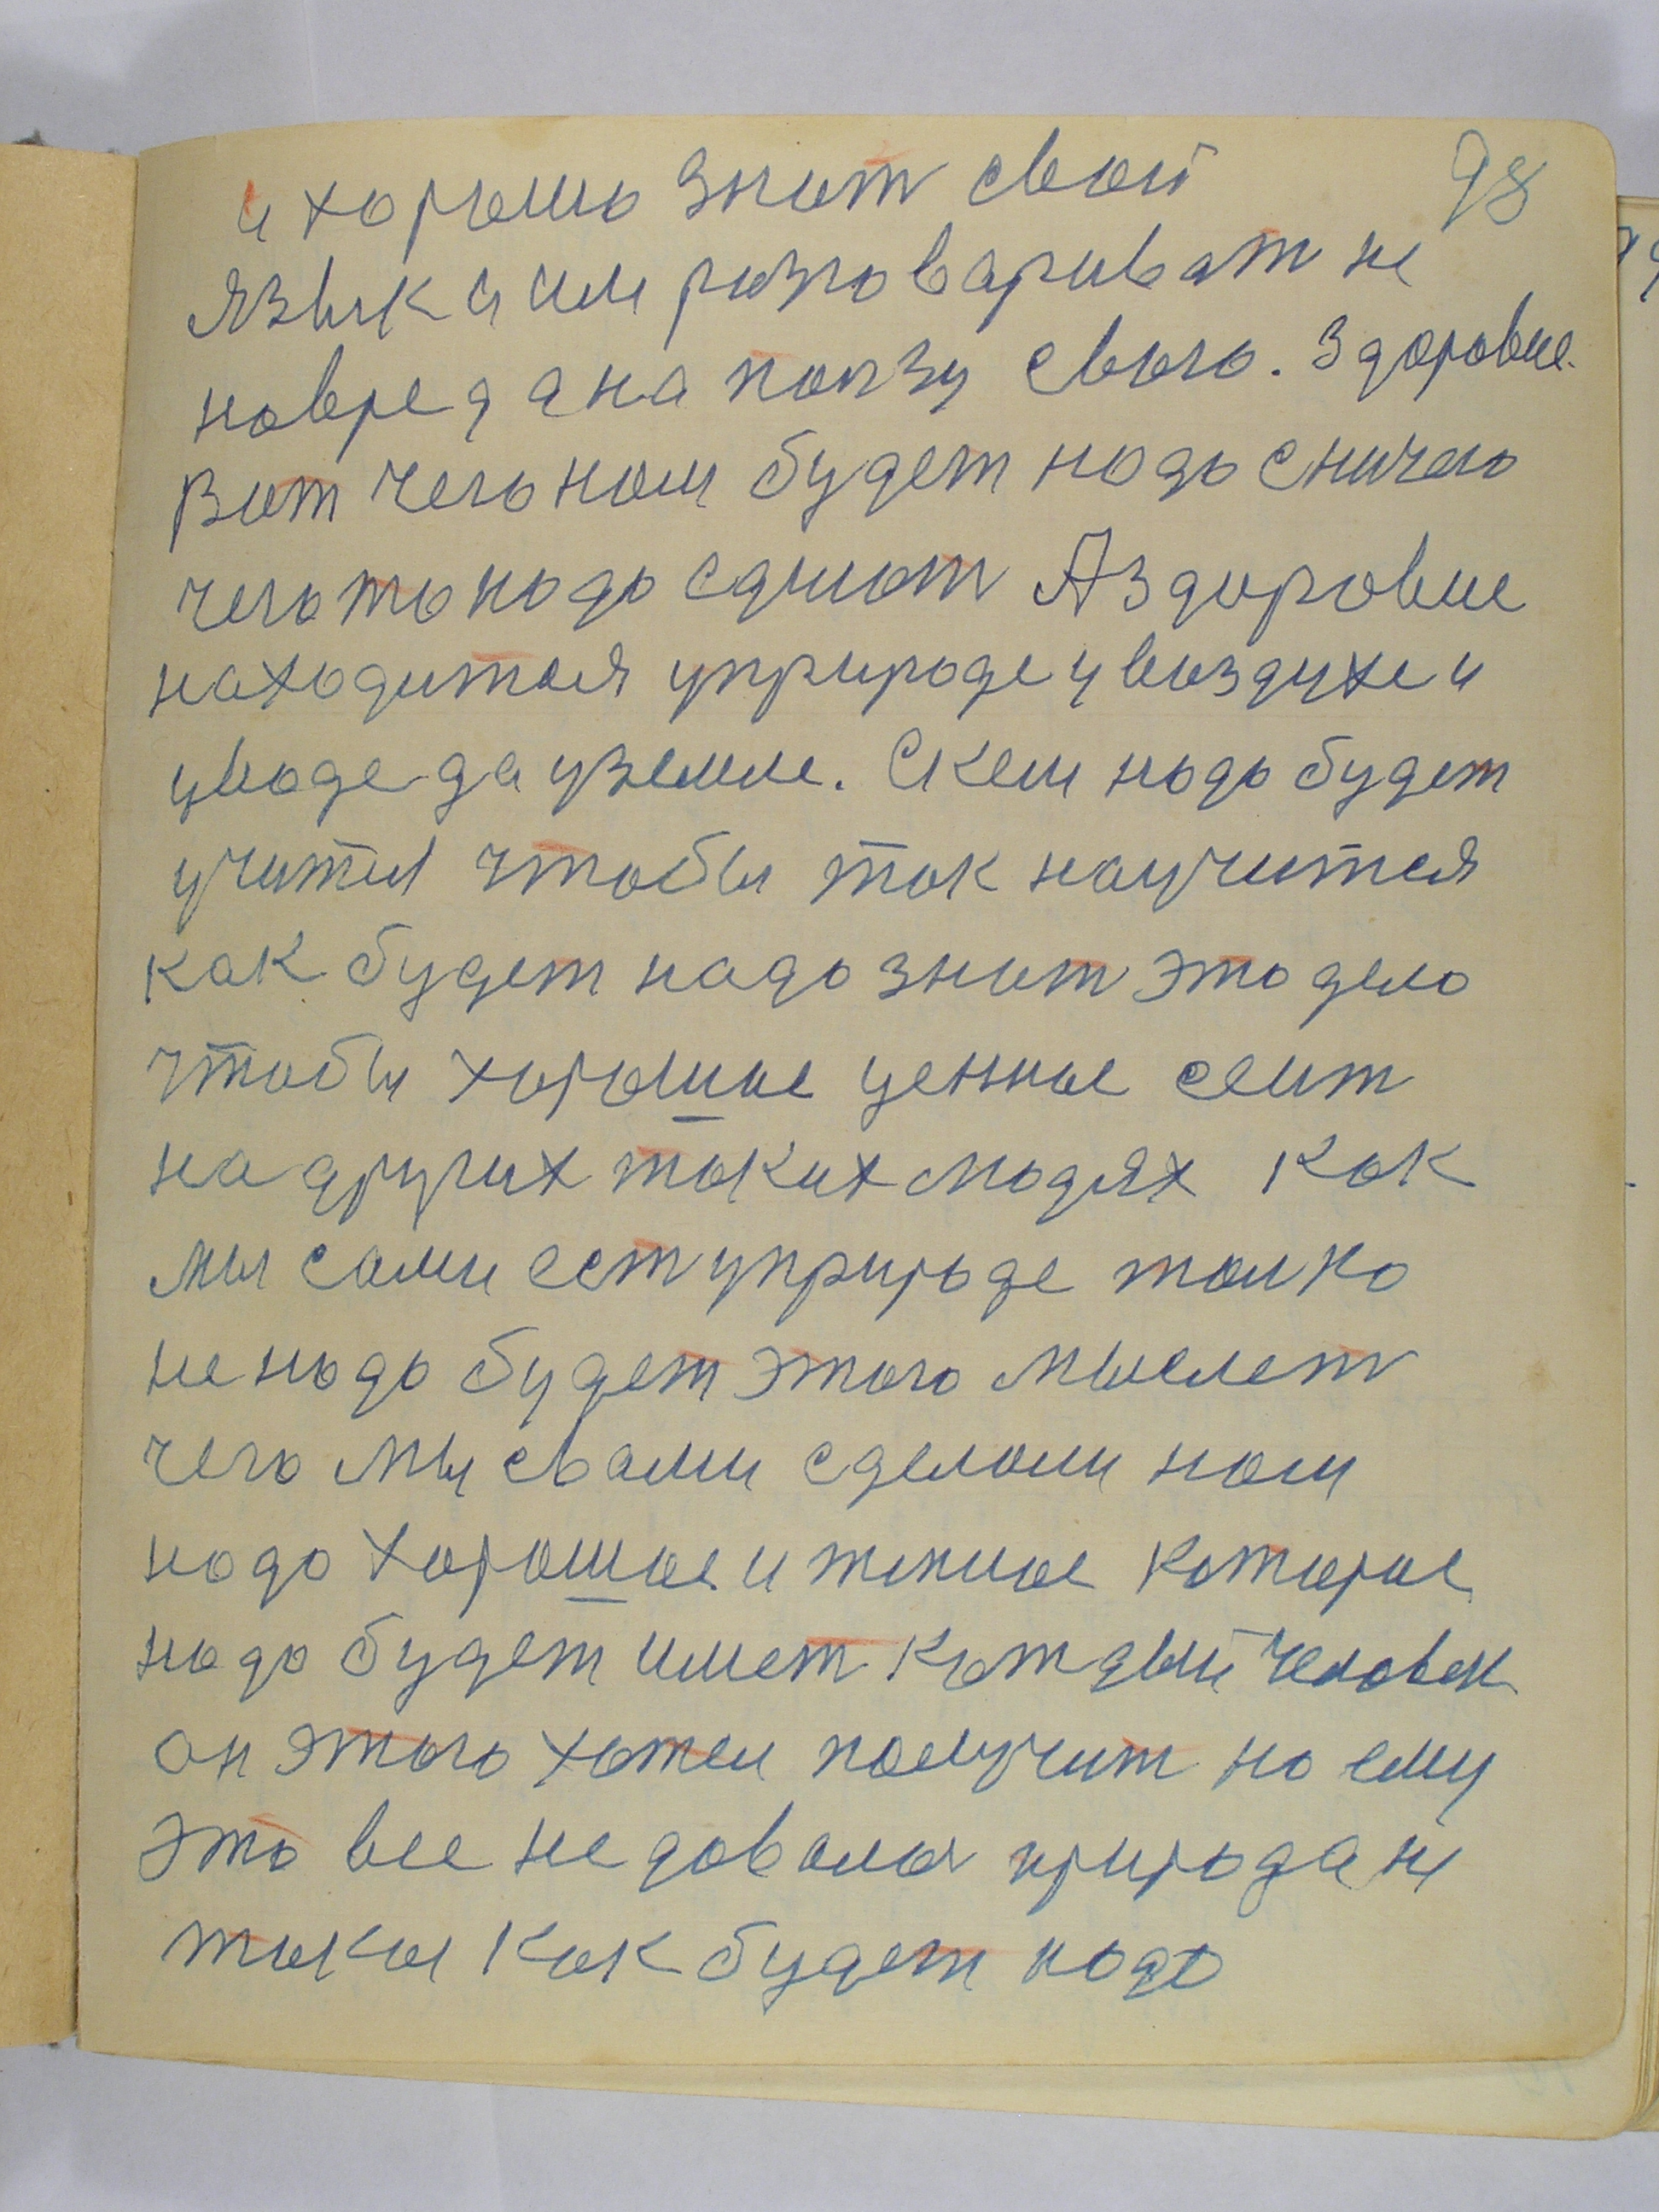 98
и хорошо знат свой
язык и им разговариват не
навред а на ползу свою. Здоровие
Вот чего нам будет надо сничего
чегото надо сдиают А здоровие
находится уприроде увоздухе и
уводе да уземле. Скем надо будет
учится чтобы так научится
как будет надо знат это дело
чтобы хорошое ценное сеит
на других таких людях как
мы сами ест уприроде толко
не надо будет этого мыслет
чего мы свами сделали нам
надо хорошое и тжное которое
надо будет имет котждый человек
он этого хотел получит но ему
это все не давала природа не
такая как будет надо